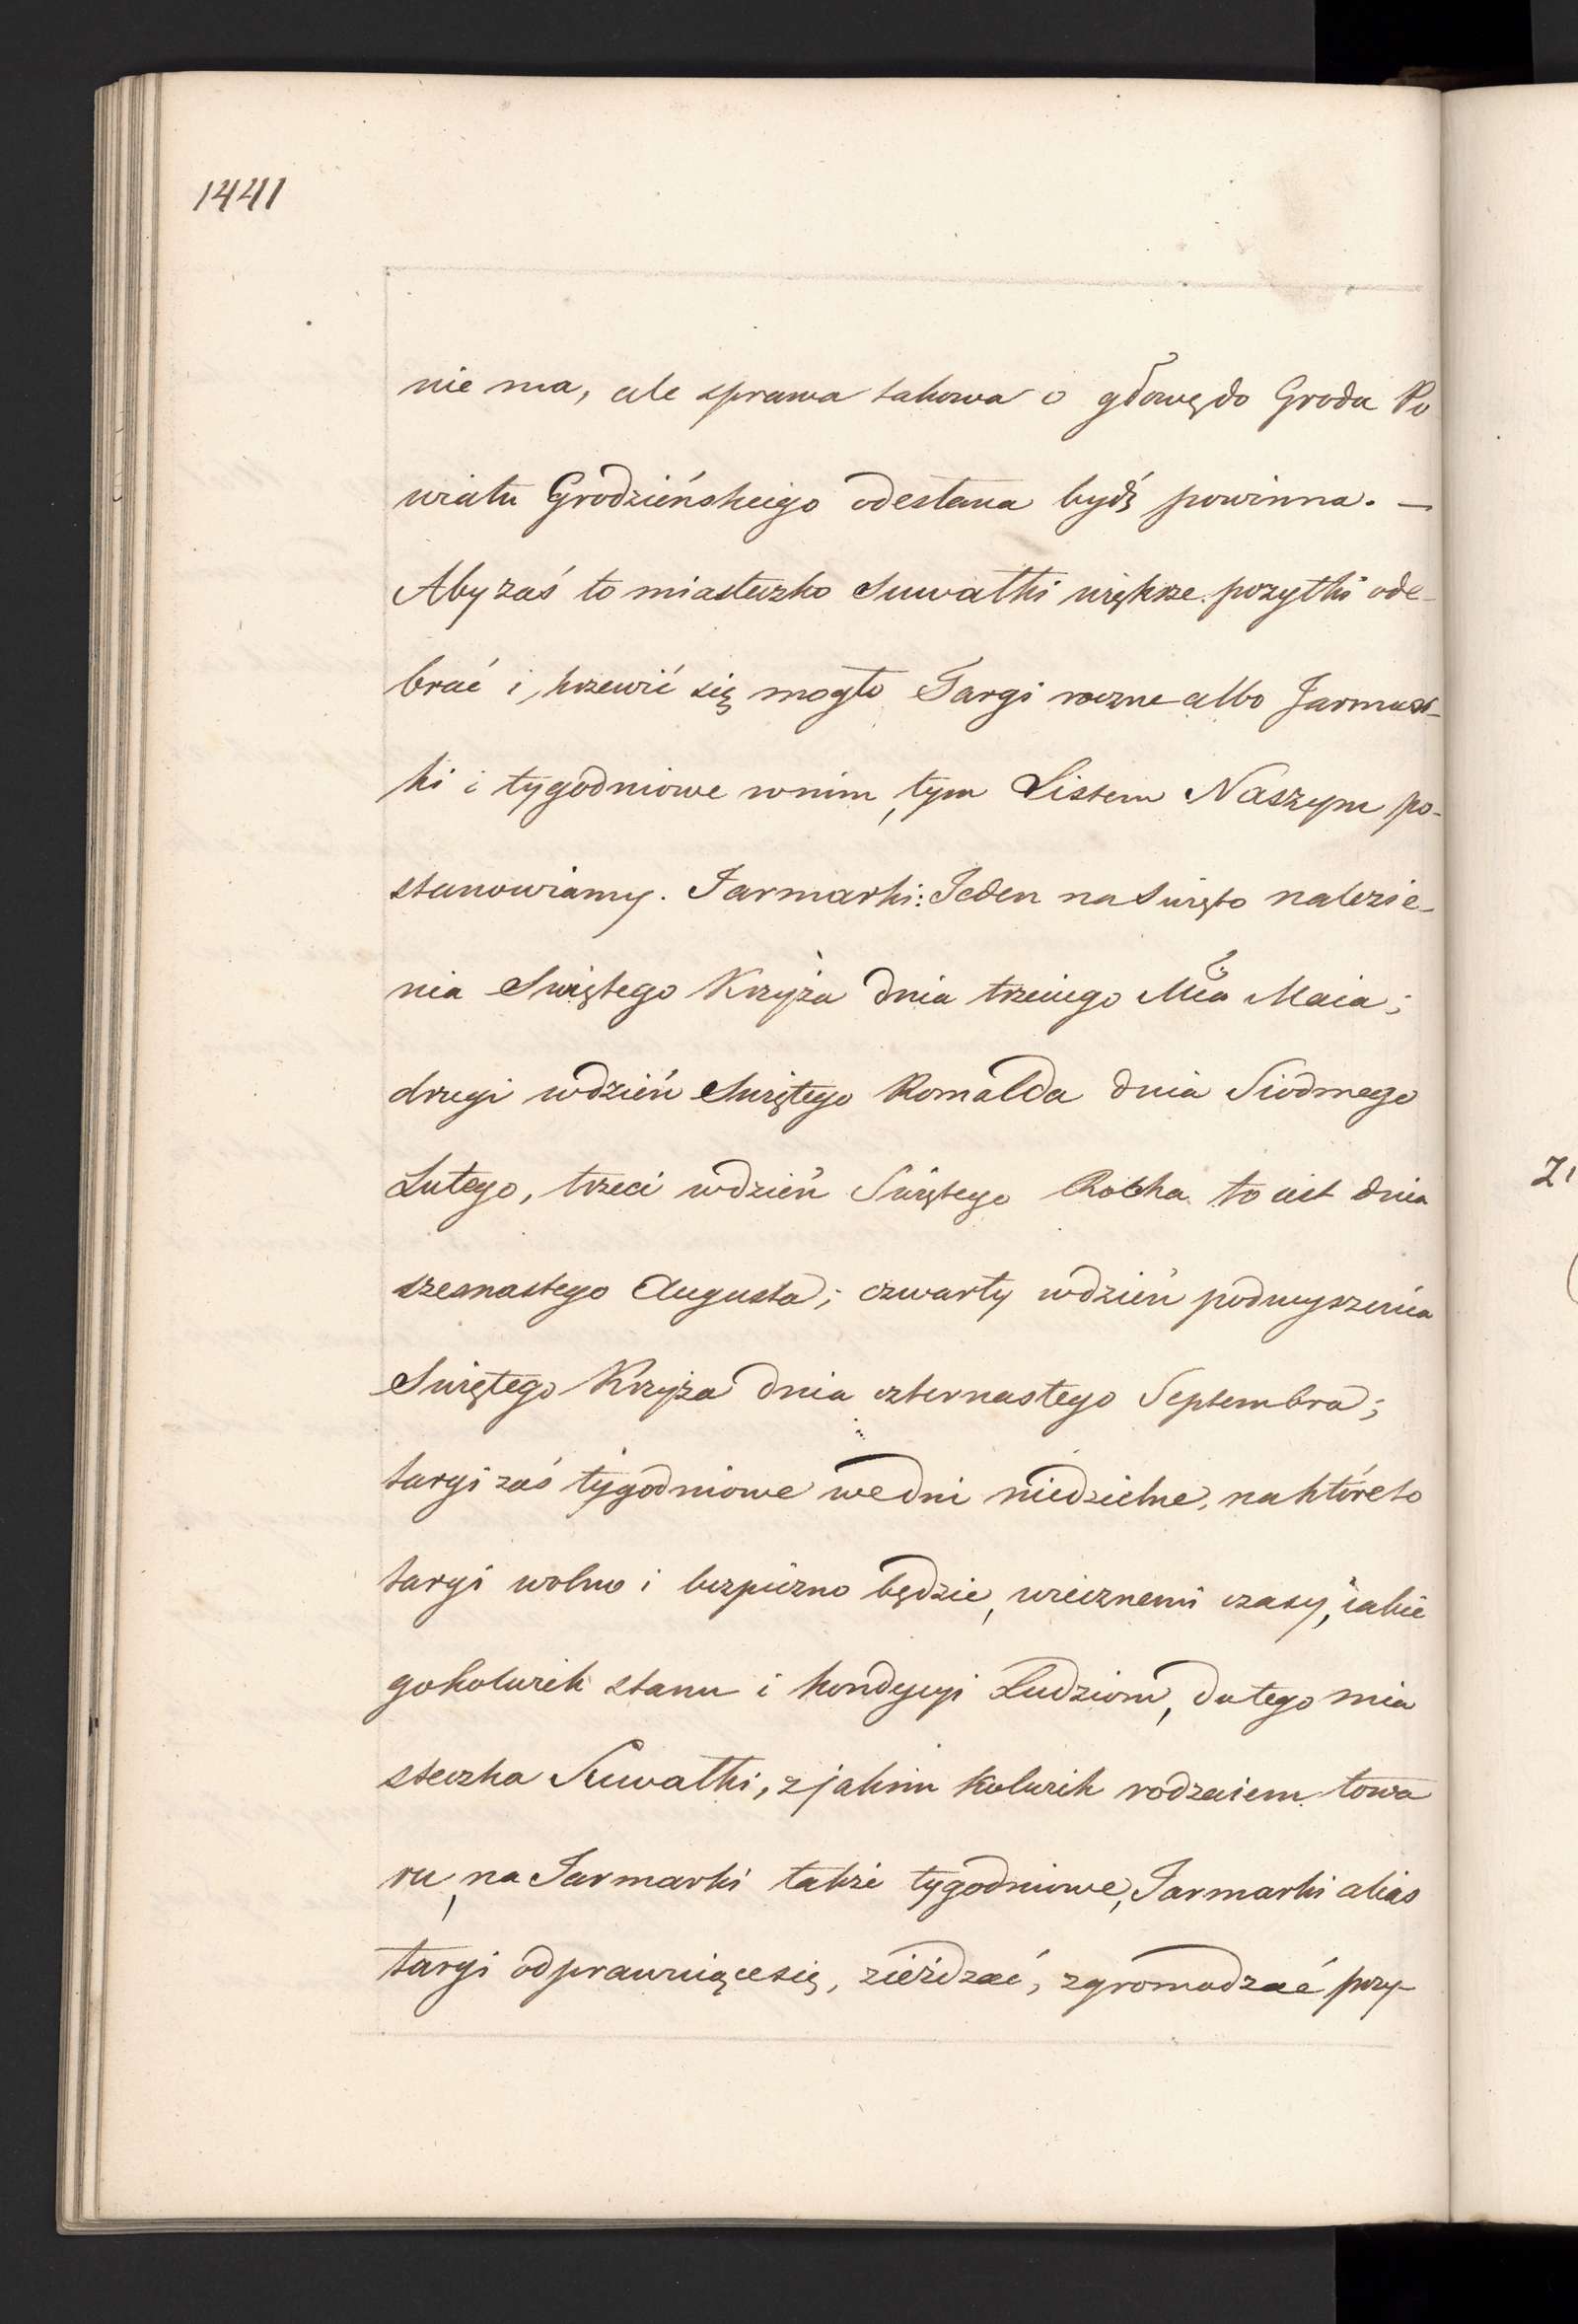 1441
nie ma, ale sprawa takowa o głowę do Grodu Po
wiatu Grodzieńskiego odesłana bydź powinna. —
Aby zaś to miasteczko Suwałki większe pożytki ode-
brać i krzewić się mogło Targi roczne albo Jarmar-
ki i tygodniowe w nim, tym Listem Naszym po-
stanowiamy. Jarmarki: Jeden na Święto nalezie-
nia Świętego Krzyża dnia trzeciego Mca Maia;
drugi w dzień Świętego Romalda dnia Siódmego
Lutego, trzeci w dzień Świętego Rocha to iest dnia
szesnastego Augusta; czwarty w dzień podwyszenia
Świętego Krzyża dnia czternastego Septembra;
targi zaś tygodniowe we dni niedzielne, na któreto
targi wolno i bezpieczno będzie, wiecznemi czasy, iakie
gokolwiek stanu i kondycyi Ludziom, do tego mia
steczka Suwałki, z jakim kolwiek rodzaiem towa
ru, na Jarmarki także tygodniowe, Jarmarki alias
targi odprawuiące się, zieżdzać, zgromadzać przy-